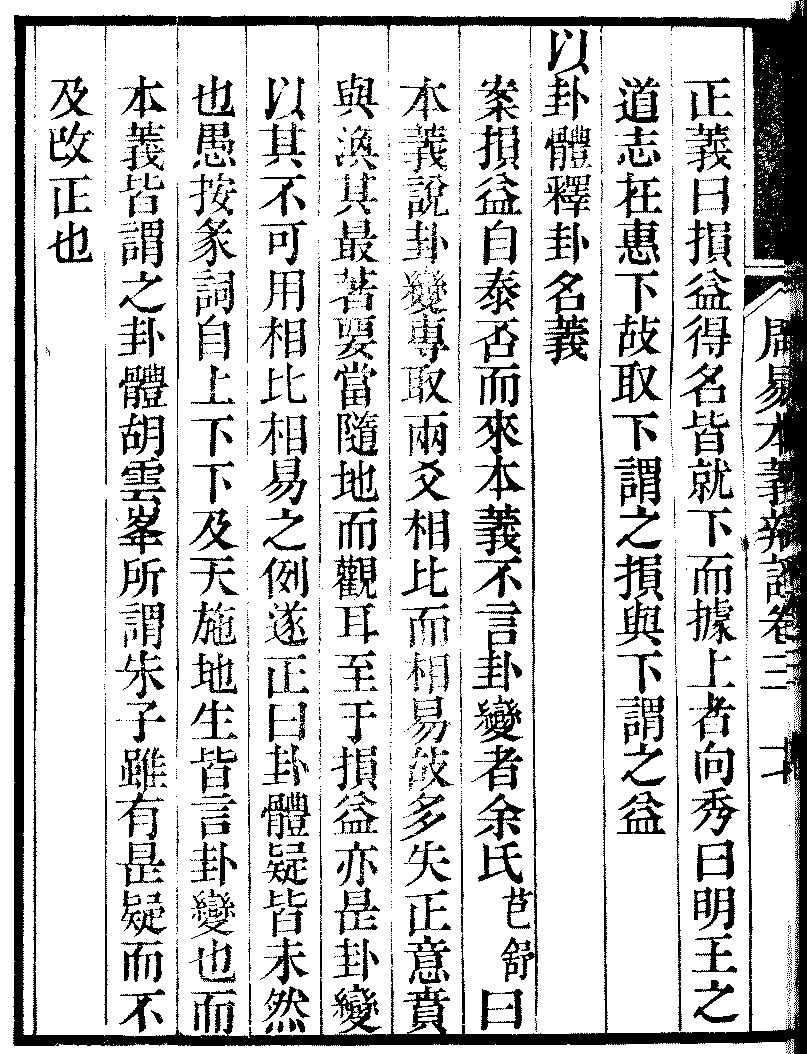 周易本義辨證卷三
正義曰損益得名皆就下而據上者向秀曰明王之
道志在惠下故取下謂之損與下謂之益
以卦體釋卦名義
案損益自泰否而來本義不言卦變者余氏芑舒曰
本義說卦變專取兩爻相比而相易故多失正意賁
與渙其最著要當隨地而觀耳至于損益亦是卦變
以其不可用相比相易之例遂正曰卦體疑皆未然
也愚按彖詞自上下下及天施地生皆言卦變也而
本義皆謂之卦體胡雲峯所謂朱子雖有是疑而不
及改正也